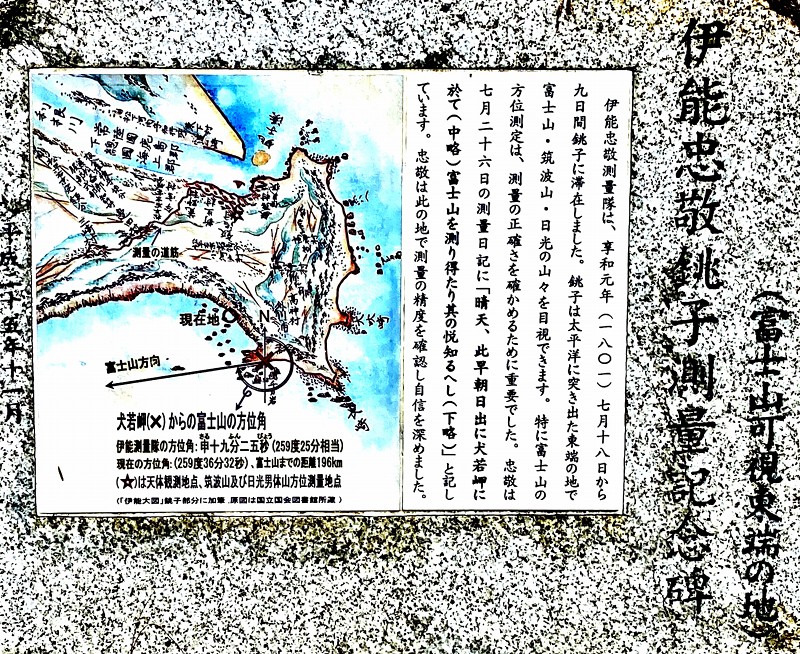 伊能忠敬銚子測量記念碑
(富士山可視東端の地)
伊能忠敬測量隊は、享和元年(一八〇一)七月十八日から
九日間銚子に滞在しました。銚子は太平洋に突き出た東端の地で
富士山・筑波山・日光の山々を目視できます。特に富士山の
方位測定は、測量の正確さを確かめるために重要でした。忠敬は
七月二十六日の測量日記に「晴天、此早朝日出に犬若岬に
於て(中略)富士山を測り得たり其の悦知るへし(下略)」と記し
ています。忠敬は此の地で測量の精度を確認し自信を深めました。
利根川
常陸國鹿島郡
下総國海上郡
測量の道筋
現在地
N
富士山方向
犬若岬(×)からの富士山の方位角
伊能測量隊の方位角:申十九分二五秒(259度25分相当)
現在の方位角:(259度36分32秒)、富士山までの距離196km
(☆)は天体観測地点、筑波山及び日光男体山方位測量地点
(「伊能大図」銚子部分に加筆 原図は国立国会図書館所蔵)
平成二十五年十一月